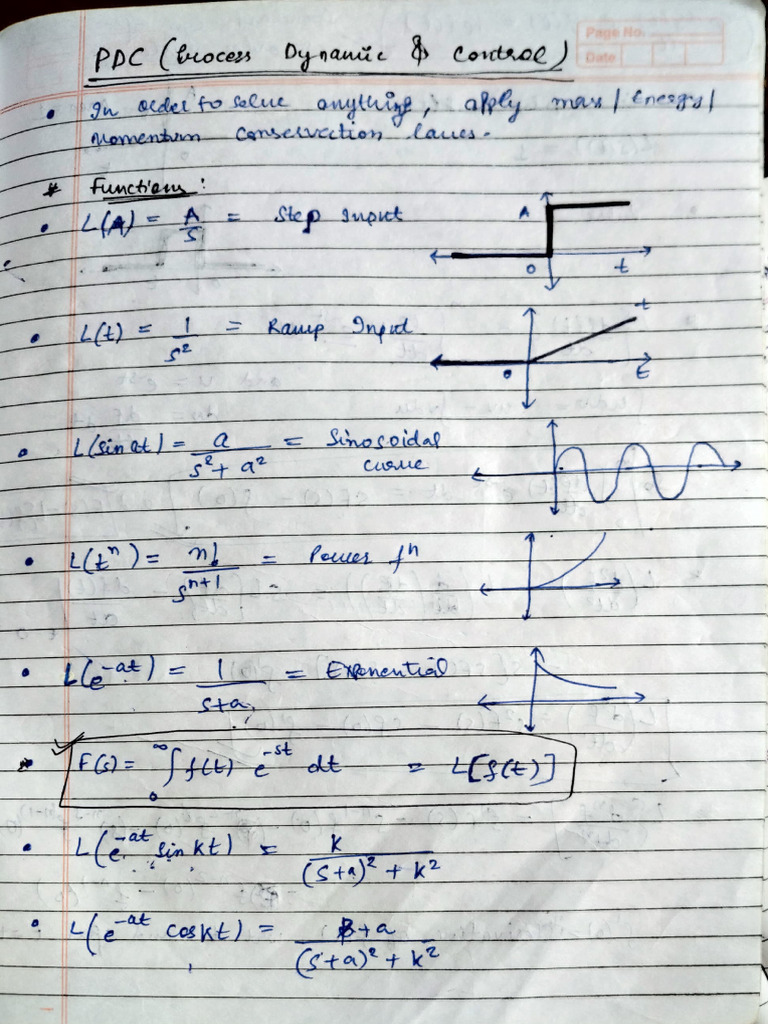 Page No.
Date
PDC (Process Dynamic & Control)
• In order to solve anything, apply mass/Energy/
Momentum conservation laws.
* Functions:
• L(A) = A/s = Step Input
A
0 t
• L(t) = 1/s² = Ramp Input
t
0 t
• L(sin at) = a/(s² + a²) = Sinosoidal
curve
• L(tⁿ) = n!/sⁿ⁺¹ = Power fⁿ
• L(e^-at) = 1/(s+a) = Exponential
* F(s) = ₀∫^∞ f(t) e^-st dt = L[f(t)]
• L(e^-at sin kt) = k/((s+a)² + k²)
• L(e^-at cos kt) = (s+a)/((s+a)² + k²)